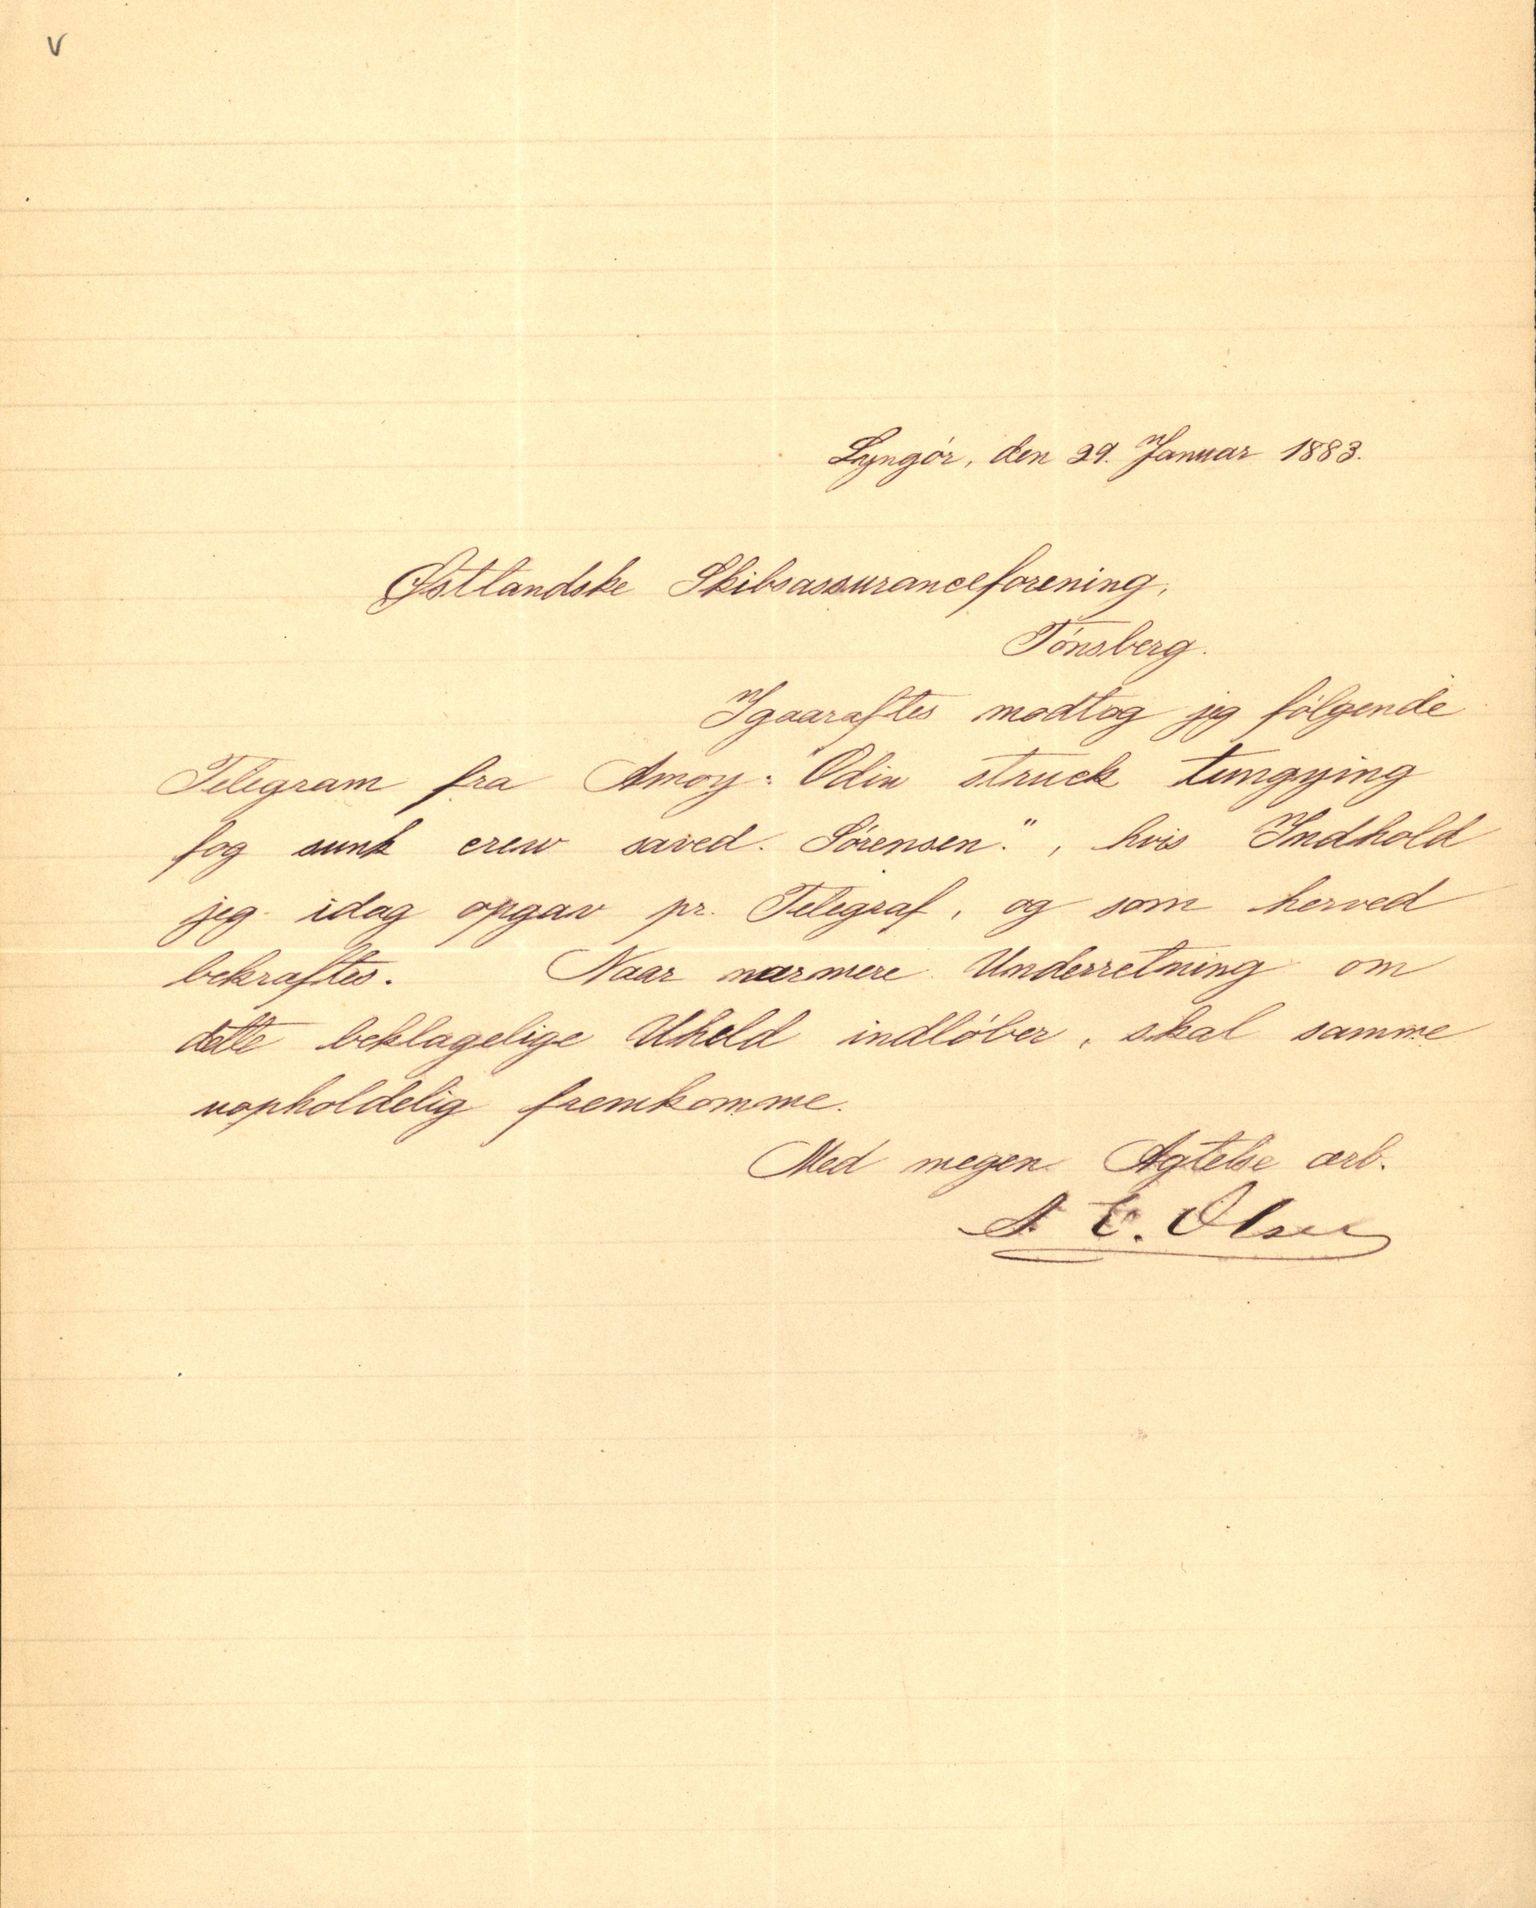 v
Lyngör, den 29. Januar 1883.
Østlandske Skibsassuranceforening,
Tönsberg.
Igaaraftes modtog jeg fölgende
Telegram fra Amoy: "Odin struck tungying
fog sunk crew saved. Sørensen.", hvis Indhold
jeg idag opgav pr. Telegraf, og som herved
bekræftes. Naar nærmere Underretning om
dette beklagelige Uheld indlöber, skal samme
uopholdelig fremkomme.
Med megen Agtelse ærb.
A C. Olsen